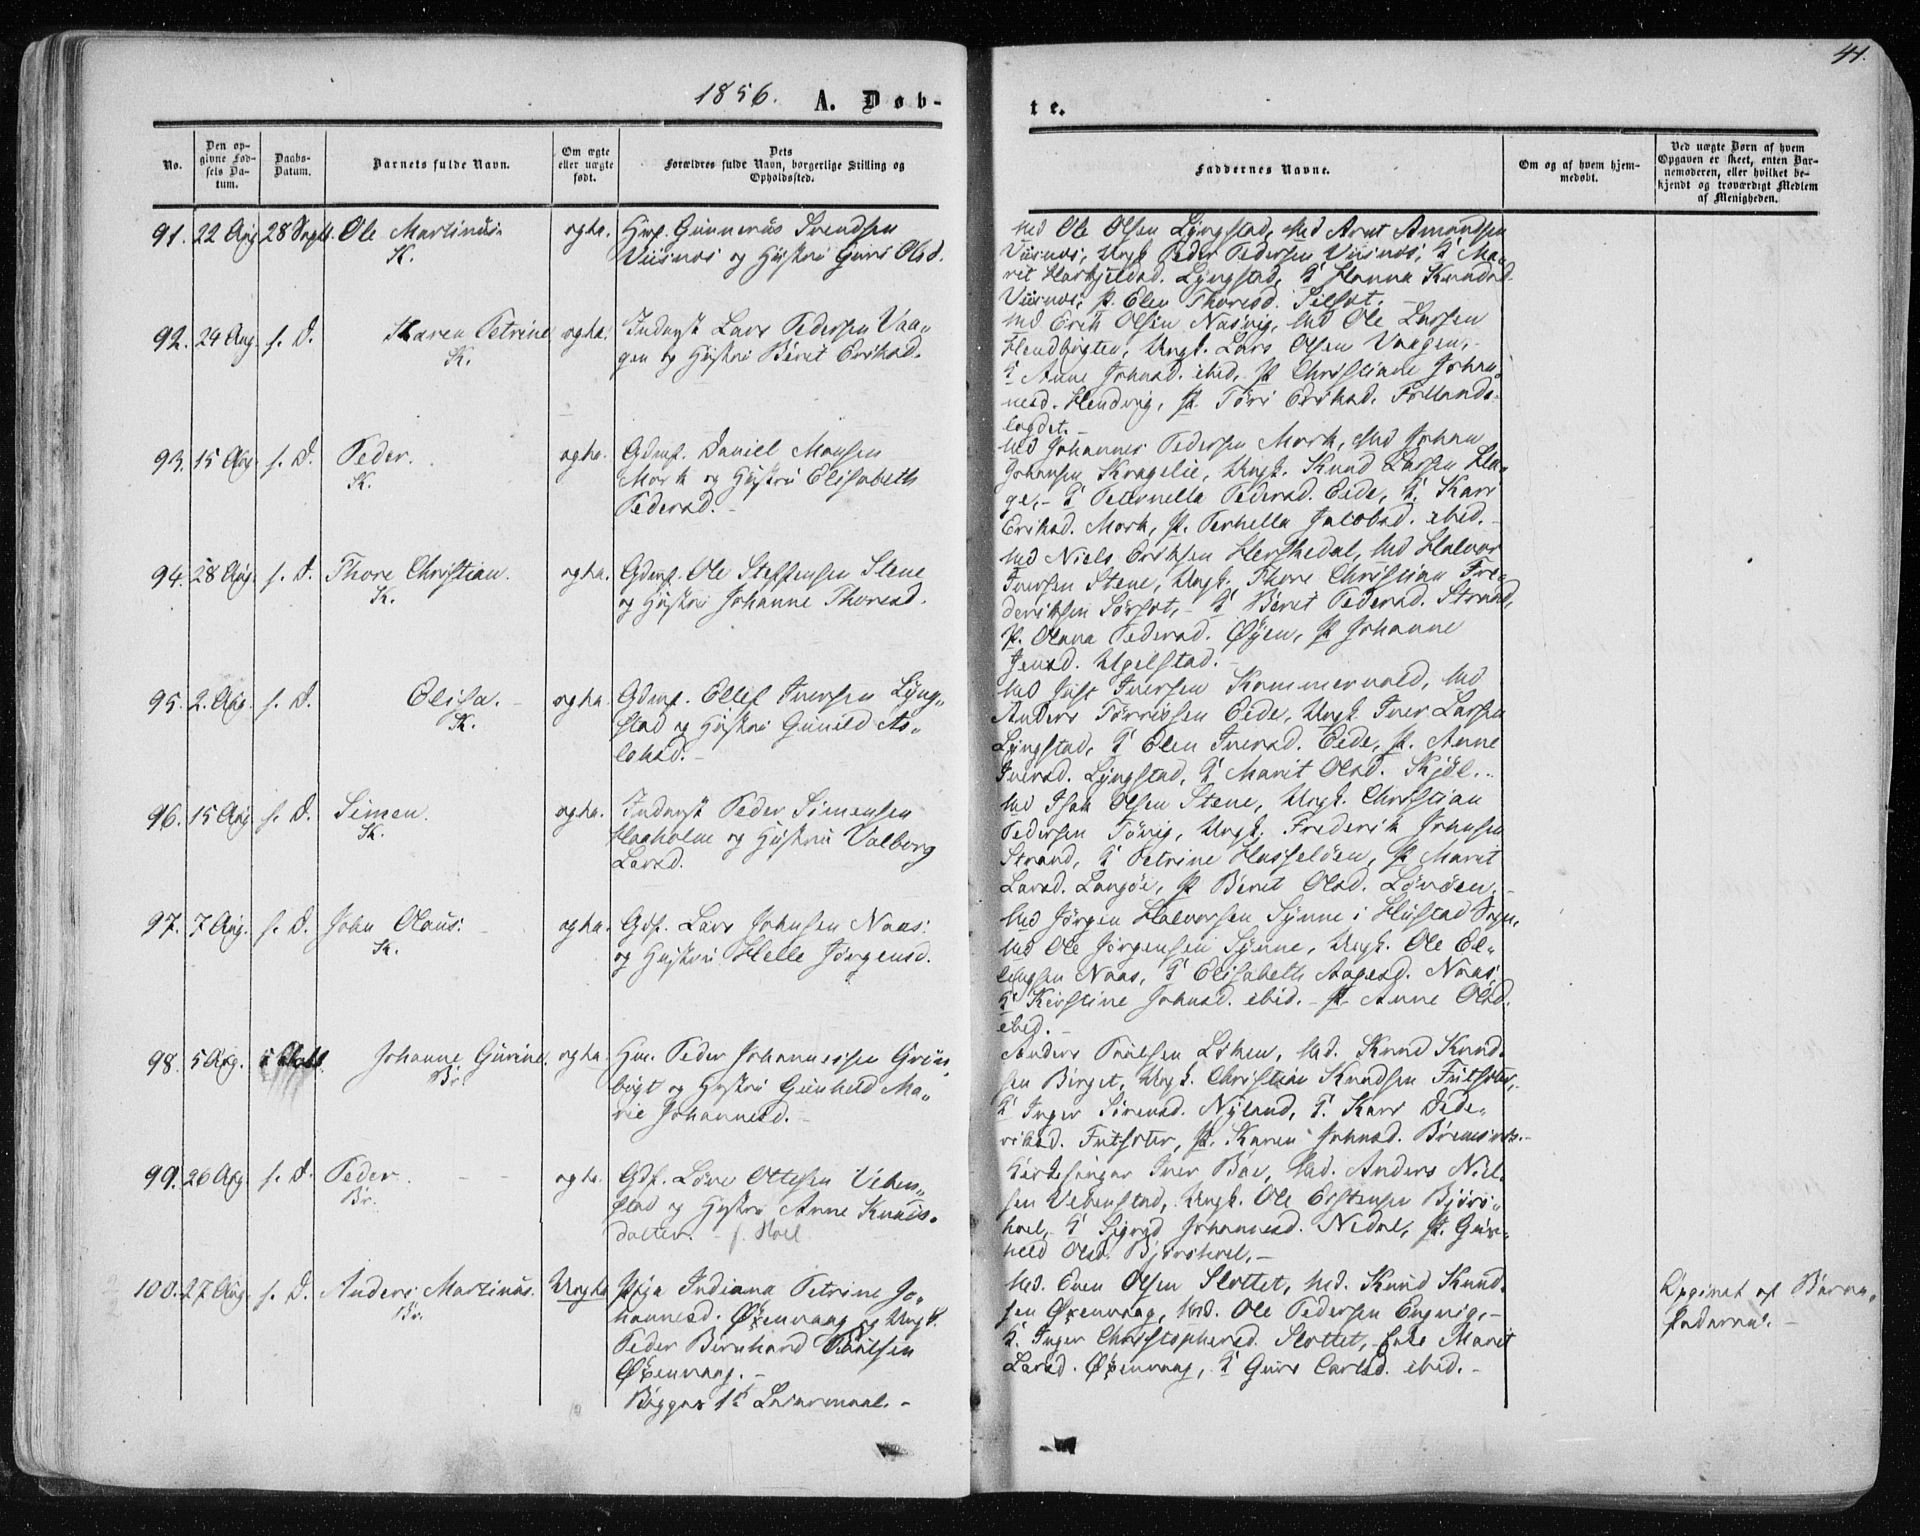 1856. A. Døb-
te.
41.
No.
Den op-
givne Fød-
sels Da-
tum.
Daabs-
Datum.
Barnets fulde Navn.
Om ægte
eller uægte
født.
Dets
Forældres fulde Navn, borgerlige Stilling og
Opholdssted.
Faddernes Navne.
Om og af hvem hjem-
medøbt.
Ved uægte Børn af hvem
Opgaven er skeet, enten Bar-
nemoderen, eller hvilket be-
kjendt og troværdigt Medlem
af Menigheden.
91. 22 Aug 28 Sept. Ole Martinus. ægte. Gunnerus Svendsen
K. Viisnæs og Hustru Guri Olsd.
Md Ole Olsen Lyngstad, Md Arnt Amundsen
Viisnæs, Ungk Peder Pedersen Viisnæs, G Ma-
rit Lyngstad, G Hanna Knudsd.
Viisnæs, P. Elen Thoresd. Silset.
92. 24 Aug. s. D. Karen Petrine ægte. Inderst Lars Pedersen Vaa-
K. gen og Hustru Berit Eriksd.
Md Erik Olsen Nasvig, Md Ole Larsen
Ungk. Lars Olsen Vaagen,
G Anne Johnsd. ibid, P Christiane Johan-
nesd. Hendvig, P. Eriksd. Follands-
løgdet.
93. 15 Aug. s. D. Peder. ægte. Gdmf. Daniel Monsen
K. Mork og Hustru Elisabeth
Pedersd.
Md Johannes Pedersen Mork, Md Johan
Johansen Kragelie, Ungk. Knud Larsen Ha-
ge, G Peternella Pedersd. Eide, G. Kari
Eriksd. Mork, P. Pernella Jacobsd. ibid.
94. 28 Aug. s. D. Thore Christian. ægte. Gdmf. Ole Steffensen Stene
K. og Hustru Johanne Thoresd.
Md Niels Eriksen Herskedal, Md Halvor
Iversen Stene, Ungk. Thore Christian Fre-
deriksen Sørset, G Berit Pedersd. Strand,
P. Olava Pedersd. Øyen, P Johanne
Jensd. Ugelstad.
95. 2. Aug. s. D. Elisa. ægte. Gdmf. Ellef Iversen Lyng-
K. stad og Hustru Gunild As-
laksd.
Md Just Iversen Kammervold, Md
Anders Torrissen Eide, Ungk. Iver Larsen
Lyngstad, G Elen Iversd. Eide, P. Anne
Iversd. Lyngstad, G Marit Olsd. Kjøl.
96. 15 Aug s. D. Simen. ægte. Inderst Peder Simensen
K. Haaholm og Hustru Valborg
Larsd.
Md Isak Olsen Stene, Ungk. Christian
Pedersen Ungk. Frederik Johnsen
Strand, G Petrine Hasseløen, P Marit
Larsd. Langøe, P Berit Olsd.
97. 7 Aug. s. D. John Olaus. ægte. Gdf. Lars Johnsen Naas
K. og Hustru Helle Jørgensd.
Md Jørgen Halvorsen Synne i Hustad Sogn,
Md Ole Jørgensen Synne, Ungk. Ole El-
lingsen Naas, G Elisabeth Aagesd. Naas
G Kirstine Johnsd. ibid. P Anne Olsd.
ibid.
98. 5 Aug. Johanne Gurine. ægte. Hm. Peder Johannessen
Br. og Hustru Gunhild Ma-
rie Johannesd.
Anders Løken, Md. Knud Knud-
sen Birget, Ungk. Christian Knudsen
G Inger Sørensd. Nyland, G. Kari Dide-
riksd. P. Karen Johnsd. Bremsnes.
99. 26 Aug. s. D. Peder. ægte. Gdf. Ottesen Veben-
Br. stad og Hustru Anne Knuds-
datter.
Kirkesanger Iver Boe, Md. Anders Niel-
sen Vebenstad, Ungk. Ole Bjørs-
hol, G Sigrid Johannesd. Nedal, P. Gun-
hild Olsd. Bjørshol.
100. 27 Aug. s. D. Anders Martinus. Uægte Pige Indiana Petrine Jo-
Br. hannesd. Øxenvaag og Ungk.
Peder Bernhard Paulsen
Øxenvaag.
Begges 1te Leiermaal.
Md. Even Olsen Slottet, Md. Knud Knud-
sen Øxenvaag, Md. Ole Pedersen Engvig,
G. Inger Christophersd. Slottet, Enke Marit
Larsd. Øxenvaag, G Guri Carlsd. ibid.
Opgivet af Barne-
faderen.